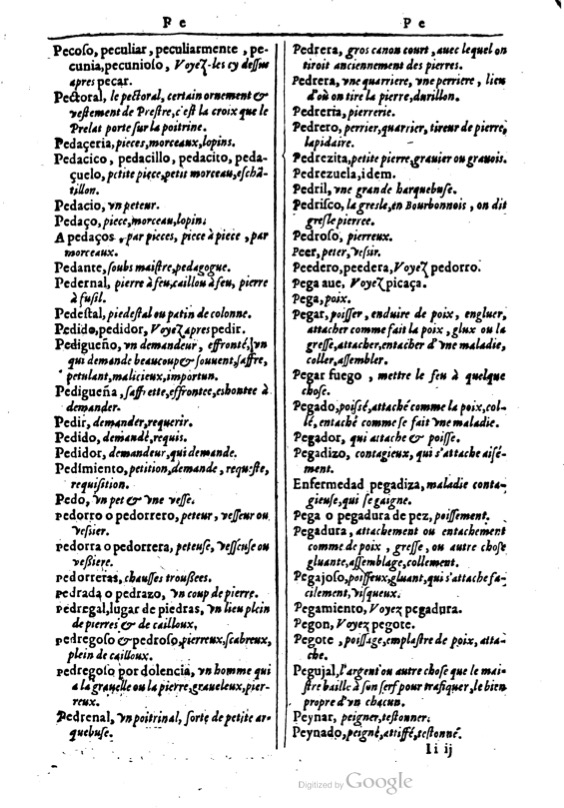 P e
Pecoso, peculiar, peculiarmente, pe-
cunia, pecunioso, Voyez-les cy dessus
apres peçar.
Pectoral, le pectoral, certain ornement &
vestement de Prestre, c'est la croix que le
Prelat porte sur la poitrine.
Pedaçeria, pieces, morceaux, lopins.
Pedacico, pedacillo, pedacito, peda-
çuelo, petite piece, petit morceau, eschã-
tillon.
Pedacio, vn peteur.
Pedaço, piece, morceau, lopin.
A pedaços, par pieces, piece à piece, par
morceaux.
Pedante, soubs maistre, pedagogue.
Pedernal, pierre à feu, caillou à feu, pierre
à fusil.
Pedestal, piedestal ou patin de colonne.
Pedido, pedidor, Voyez apres pedir.
Pedigueño, vn demandeur, effronté, vn
qui demande beaucoup & souuent, saffre,
petulant, malicieux, importun.
Pedigueña, saffrette, effrontee, eshontee à
demander.
Pedir, demander, requerir.
Pedido, demandé, requis.
Pedidor, demandeur, qui demande.
Pedimiento, petition, demande, requeste,
requisition.
Pedo, vn pet & vne vesse.
pedorro o pedorrero, peteur, vesseur ou
vessier.
pedorra o pedorrera, peteuse, vesseuse ou
vessiere.
pedorreras, chausses troussees.
pedrada o pedrazo, vn coup de pierre.
pedregal, lugar de piedras, vn lieu plein
de pierres & de cailloux.
pedregoso & pedroso, pierreux, scabreux,
plein de cailloux.
pedregoso por dolencia, vn homme qui
a la grauelle ou la pierre, graueleux, pier-
reux.
Pedrenal, vn poitrinal, sorte de petite ar-
quebuse.
P e
Pedrera, gros canon court, auec lequel on
tiroit anciennement des pierres.
Pedrera, vne quarriere, vne perriere, lieu
d'où on tire la pierre, durillon.
Pedreria, pierrerie.
Pedrero, perrier, quarrier, tireur de pierre,
lapidaire.
Pedrezita, petite pierre, grauier ou grauois.
Pedrezuela, idem.
Pedril, vne grande harquebuse.
Pedrisco, la gresle, en Bourbonnois, on dit
gresle pierree.
Pedroso, pierreux.
Peer, peter, vessir.
Peedero, peedera, Voyez pedorro.
Pega aue, Voyez picaça.
Pega, poix.
Pegar, poisser, enduire de poix, engluer,
attacher comme fait la poix, glux ou la
gresse, attacher, entacher d'vne maladie,
coller, assembler.
Pegar fuego, mettre le feu à quelque
chose.
Pegado, poissé, attaché comme la poix, col-
lé, entaché comme se fait vne maladie.
Pegador, qui attache & poisse.
Pegadizo, contagieux, qui s'attache aisé-
ment.
Enfermedad pegadiza, maladie conta-
gieuse, qui se gaigne.
Pega o pegadura de pez, poissement.
Pegadura, attachement ou entachement
comme de poix, gresse, ou autre chose
gluante, assemblage, collement.
Pegajoso, poisseux, gluant, qui s'attache fa-
cilement, visqueux.
Pegamiento, Voyez pegadura.
Pegon, Voyez pegote.
Pegote, poissage, emplastre de poix, atta-
che.
Pegujal, l'argent ou autre chose que le mai-
stre baille à son serf pour trafiquer, le bien
propre d'vn chacun.
Peynar, peigner, testonner.
Peynado, peigné, attiffé, testonné.
Ii ij
Digitized by Google